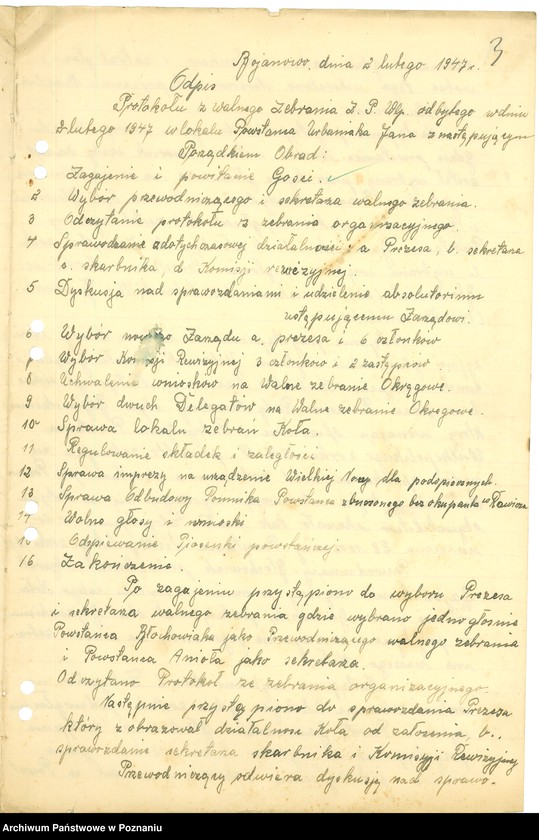 3
Bojanowo, dnia 2 lutego 1947 r.
Odpis
Protokołu z walnego Zebrania Z. P. Wlp. odbytego w dniu
2 lutego 1947 w lokalu Powstańca Urbaniaka Jana z następującym
Porządkiem Obrad:
Zagajenie i powitanie Gości.
2 Wybór przewodniczącego i sekretaza walnego zebrania.
3 Odczytanie protokołu z zebrania organizacyjnego.
4 Sprawozdanie z dotychczasowej działalności: a Prezesa, b. sekretaza
c. skarbnika, d Komisji rewizyjnej.
5 Dyskusja nad sprawozdaniami i udzielenie absolutorium
ustępującemu Zarządowi.
6 Wybór nowego Zarządu a. prezesa i 6 członków
7 Wybór Komisji Rewizyjnej 3 członków i 2 zastępców.
8 Uchwalenie wniosków na Walne zebranie Okręgowe.
9 Wybór dwuch Delegatów na Walne zebranie Okręgowe.
10 Sprawa lokalu zebrań Koła.
11 Regulowanie składek i zaległości
12 Sprawa imprezy na urządzenie Wielkiej Nocy dla podopiecznych.
13 Sprawa Odbudowy Pomnika Powstańca zburzonego bez okupanta w Rawiczu
14 Wolne głosy i wnioski
15 Odspiewanie Piosenki powstańczej.
16 Zakończenie.
Po zagajeniu przystąpiono do wyboru Prezesa
i sekretaza walnego zebrania gdzie wybrano jednogłośnie
Powstańca Błochowiaka jako Przewodniczącego walnego zebrania
i Powstańca Anioła jako sekretaza.
Odczytano Protokoł ze zebrania organizacyjnego.
Następnie przystąpiono do sprawozdania Prezesa
który zobrazował działalnosc Koła od założenia, b..
sprawozdanie sekretaza skarbnika i Komisyji Rewizyjnej
Przewodniczący odwiera dyskusją nad sprawo-
Archiwum Państwowe w Poznaniu